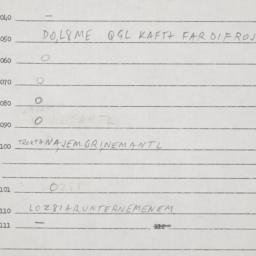 040 —
050 DO,L8ME QGL KAFTA FARDIFROJ
060 O
070 O
080 O
090 O
100 NA,JEM.GRINEMANTL
101 O
110 LOZ8IARUNTERNEMENEM
111 —